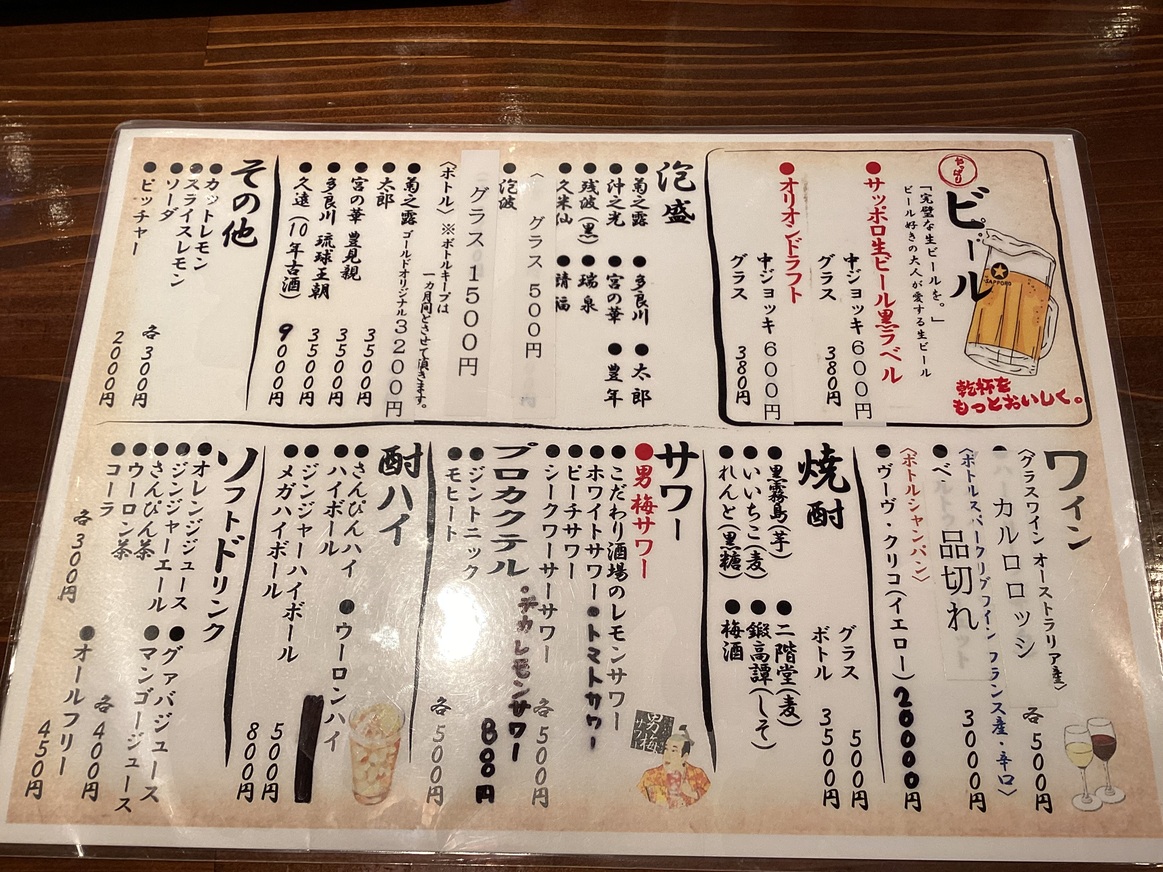 やっぱり
ビール
「完璧な生ビールを。」
ビール好きの大人が愛する生ビール
SAPPORO
乾杯を
もっとおいしく。
●サッポロ生ビール黒ラベル
中ジョッキ 600円
グラス 380円
●オリオンドラフト
中ジョッキ 600円
グラス 380円
泡盛
●菊之露 ●多良川 ●太郎
●沖之光 ●宮の華 ●豊年
●残波(黒) ●瑞泉
●久米仙 ●請福
グラス 500円
●泡波
グラス 1500円
〈ボトル〉※ボトルキープは
一カ月間とさせて頂きます。
●菊之露 ゴールドオリジナル 3200円
●太郎 3500円
●宮の華 豊見親 3500円
●多良川 琉球王朝 3500円
●久遠(10年古酒) 9000円
その他
●カットレモン
●スライスレモン
●ソーダ 各300円
●ピッチャー 2000円
ワイン
〈グラスワイン オーストラリア産〉
カルロロッシ 各500円
〈ボトルスパークリングワイン フランス産・辛口〉
3000円
品切れ
〈ボトルシャンパン〉
●ヴーヴ・クリコ(イエロー) 20000円
焼酎
グラス 500円
ボトル 3500円
●黒霧島(芋) ●二階堂(麦)
●いいちこ(麦) ●鍛高譚(しそ)
●れんと(黒糖) ●梅酒
サワー
●男梅サワー
●こだわり酒場のレモンサワー
●ホワイトサワー ●トマトサワー
●ピーチサワー
●シークワーサーサワー 各500円
・デカレモンサワー 800円
男梅
サワー
プロカクテル
●ジントニック
●モヒート 各500円
酎ハイ
●さんぴんハイ ●ウーロンハイ
●ハイボール
●ジンジャーハイボール 500円
●メガハイボール 800円
ソフトドリンク
●オレンジジュース ●グァバジュース
●ジンジャーエール ●マンゴージュース
各400円
●さんぴん茶
●ウーロン茶
●コーラ
各300円
●オールフリー 450円